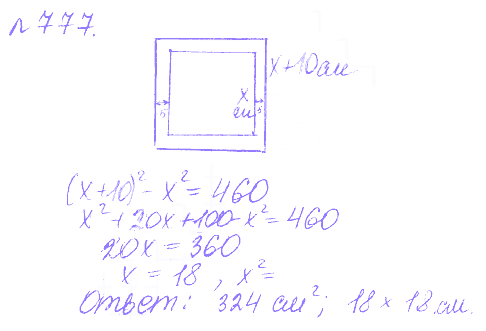 №777.
x+10 см
x
см
5
5
(x+10)² - x² = 460
x² + 20x + 100 - x² = 460
20x = 360
x = 18 , x² =
Ответ: 324 см²; 18 × 18 см.